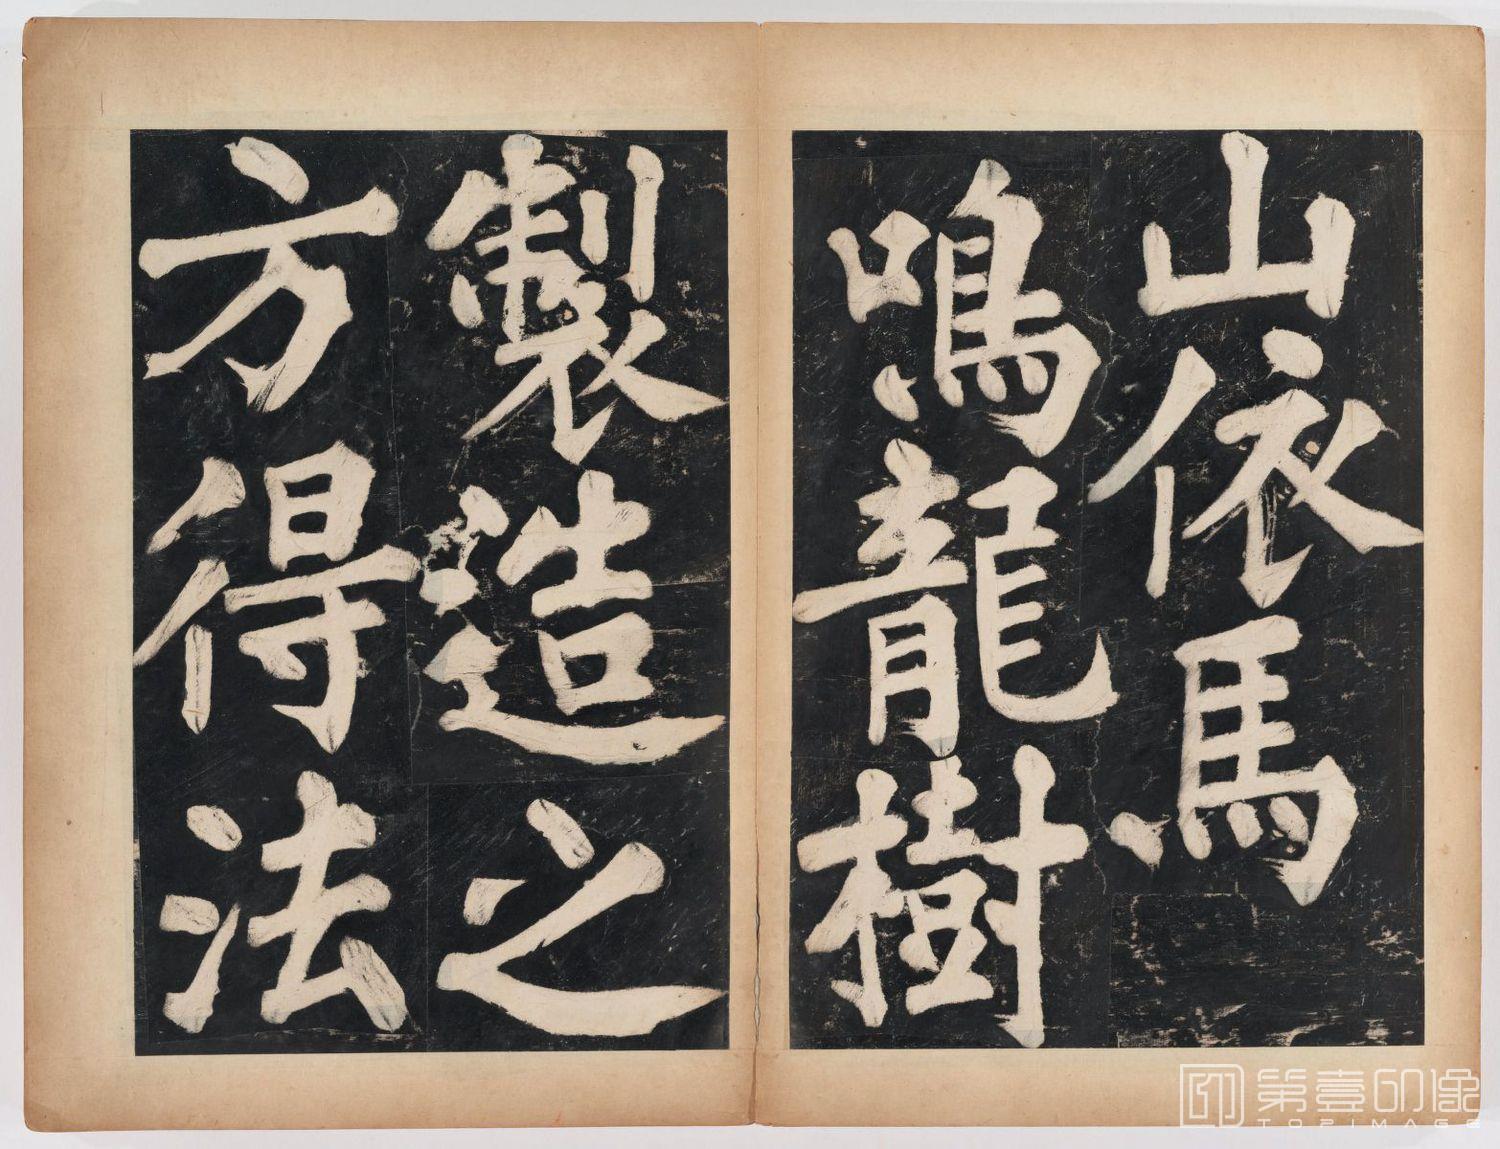 山依馬
鳴龍樹
製造之
方得法
第壹印像
TOPIMAGE